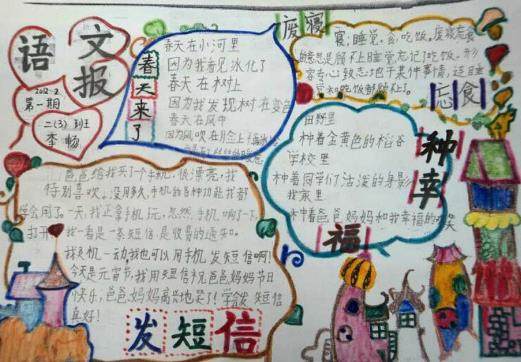 语文报
2012.2
第一期
二(3)班
李畅
春天来了
春天在小河里
因为我看见冰化了
春天在树上
因为我发现树在变色
春天在风中
因为风吹在脸上
废寝忘食
寝:睡觉。食:吃饭。废寝忘食
顾不上睡觉忘记了吃饭。形
容专心致志地干某件事情,连睡
觉和吃饭都顾不上。
种幸福
田野里
种着金黄色的稻谷
学校里
种着同学们活泼的身影
我家里
种着爸爸妈妈和我幸福的笑
爸爸给我买了个手机,很漂亮,我
特别喜欢。没用多久,手机的各种功能我都
学会用了。一天,我正拿手机玩,忽然,手机响了一下,
打开一看是一条短信,是收费的通知。
我灵机一动,我也可以用手机发短信啊!
今天是元宵节,我用短信祝爸爸妈妈节日
快乐,爸爸妈妈高兴地笑了!学会发短信
真好!
发短信